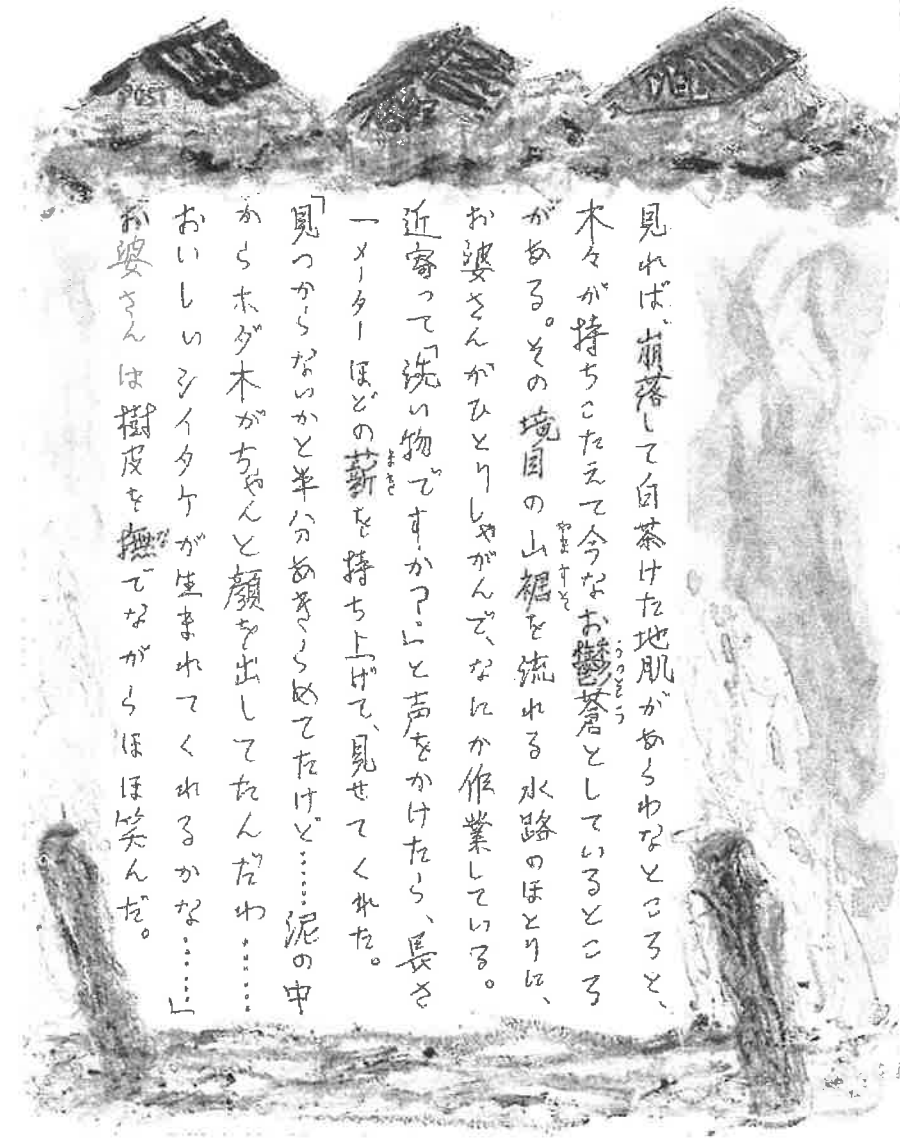 見れば、崩落して白茶けた地肌があらわなところと、
木々が持ちこたえて今なお鬱蒼としているところ
がある。その境目の山裾を流れる水路のほとりに、
お婆さんがひとりしゃがんで、なにか作業している。
近寄って「洗い物ですか？」と声をかけたら、長さ
一メーターほどの薪を持ち上げて、見せてくれた。
「見つからないかと半分あきらめてたけど……泥の中
からホダ木がちゃんと顔を出してたんだわ……
おいしいシイタケが生まれてくれるかな……」
お婆さんは樹皮を撫でながらほほ笑んだ。
うっそう
やますそ
まき
な
POST